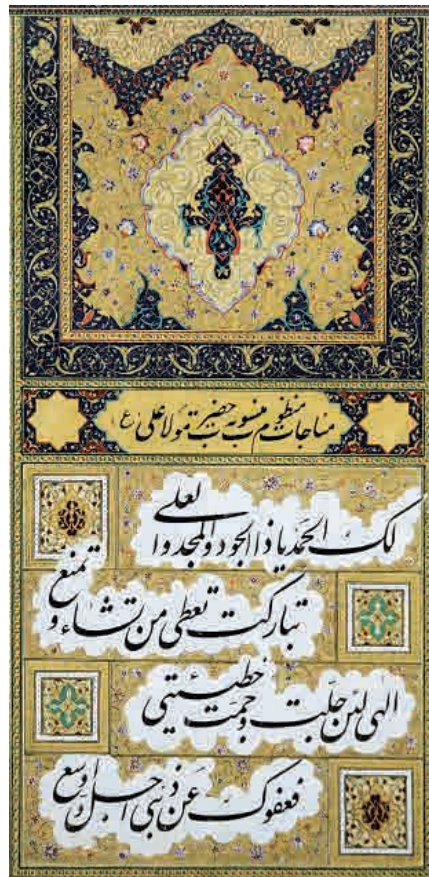 مناجات منظوم منسوب به حضرت مولا علی (ع)
لک الحمد یا ذا الجود و المجد و العلی
تبارکت تعطی من تشاء و تمنع
الهی لئن جلّت و جمّت خطیئتی
فعفوک عن ذنبی اجل و اوسع